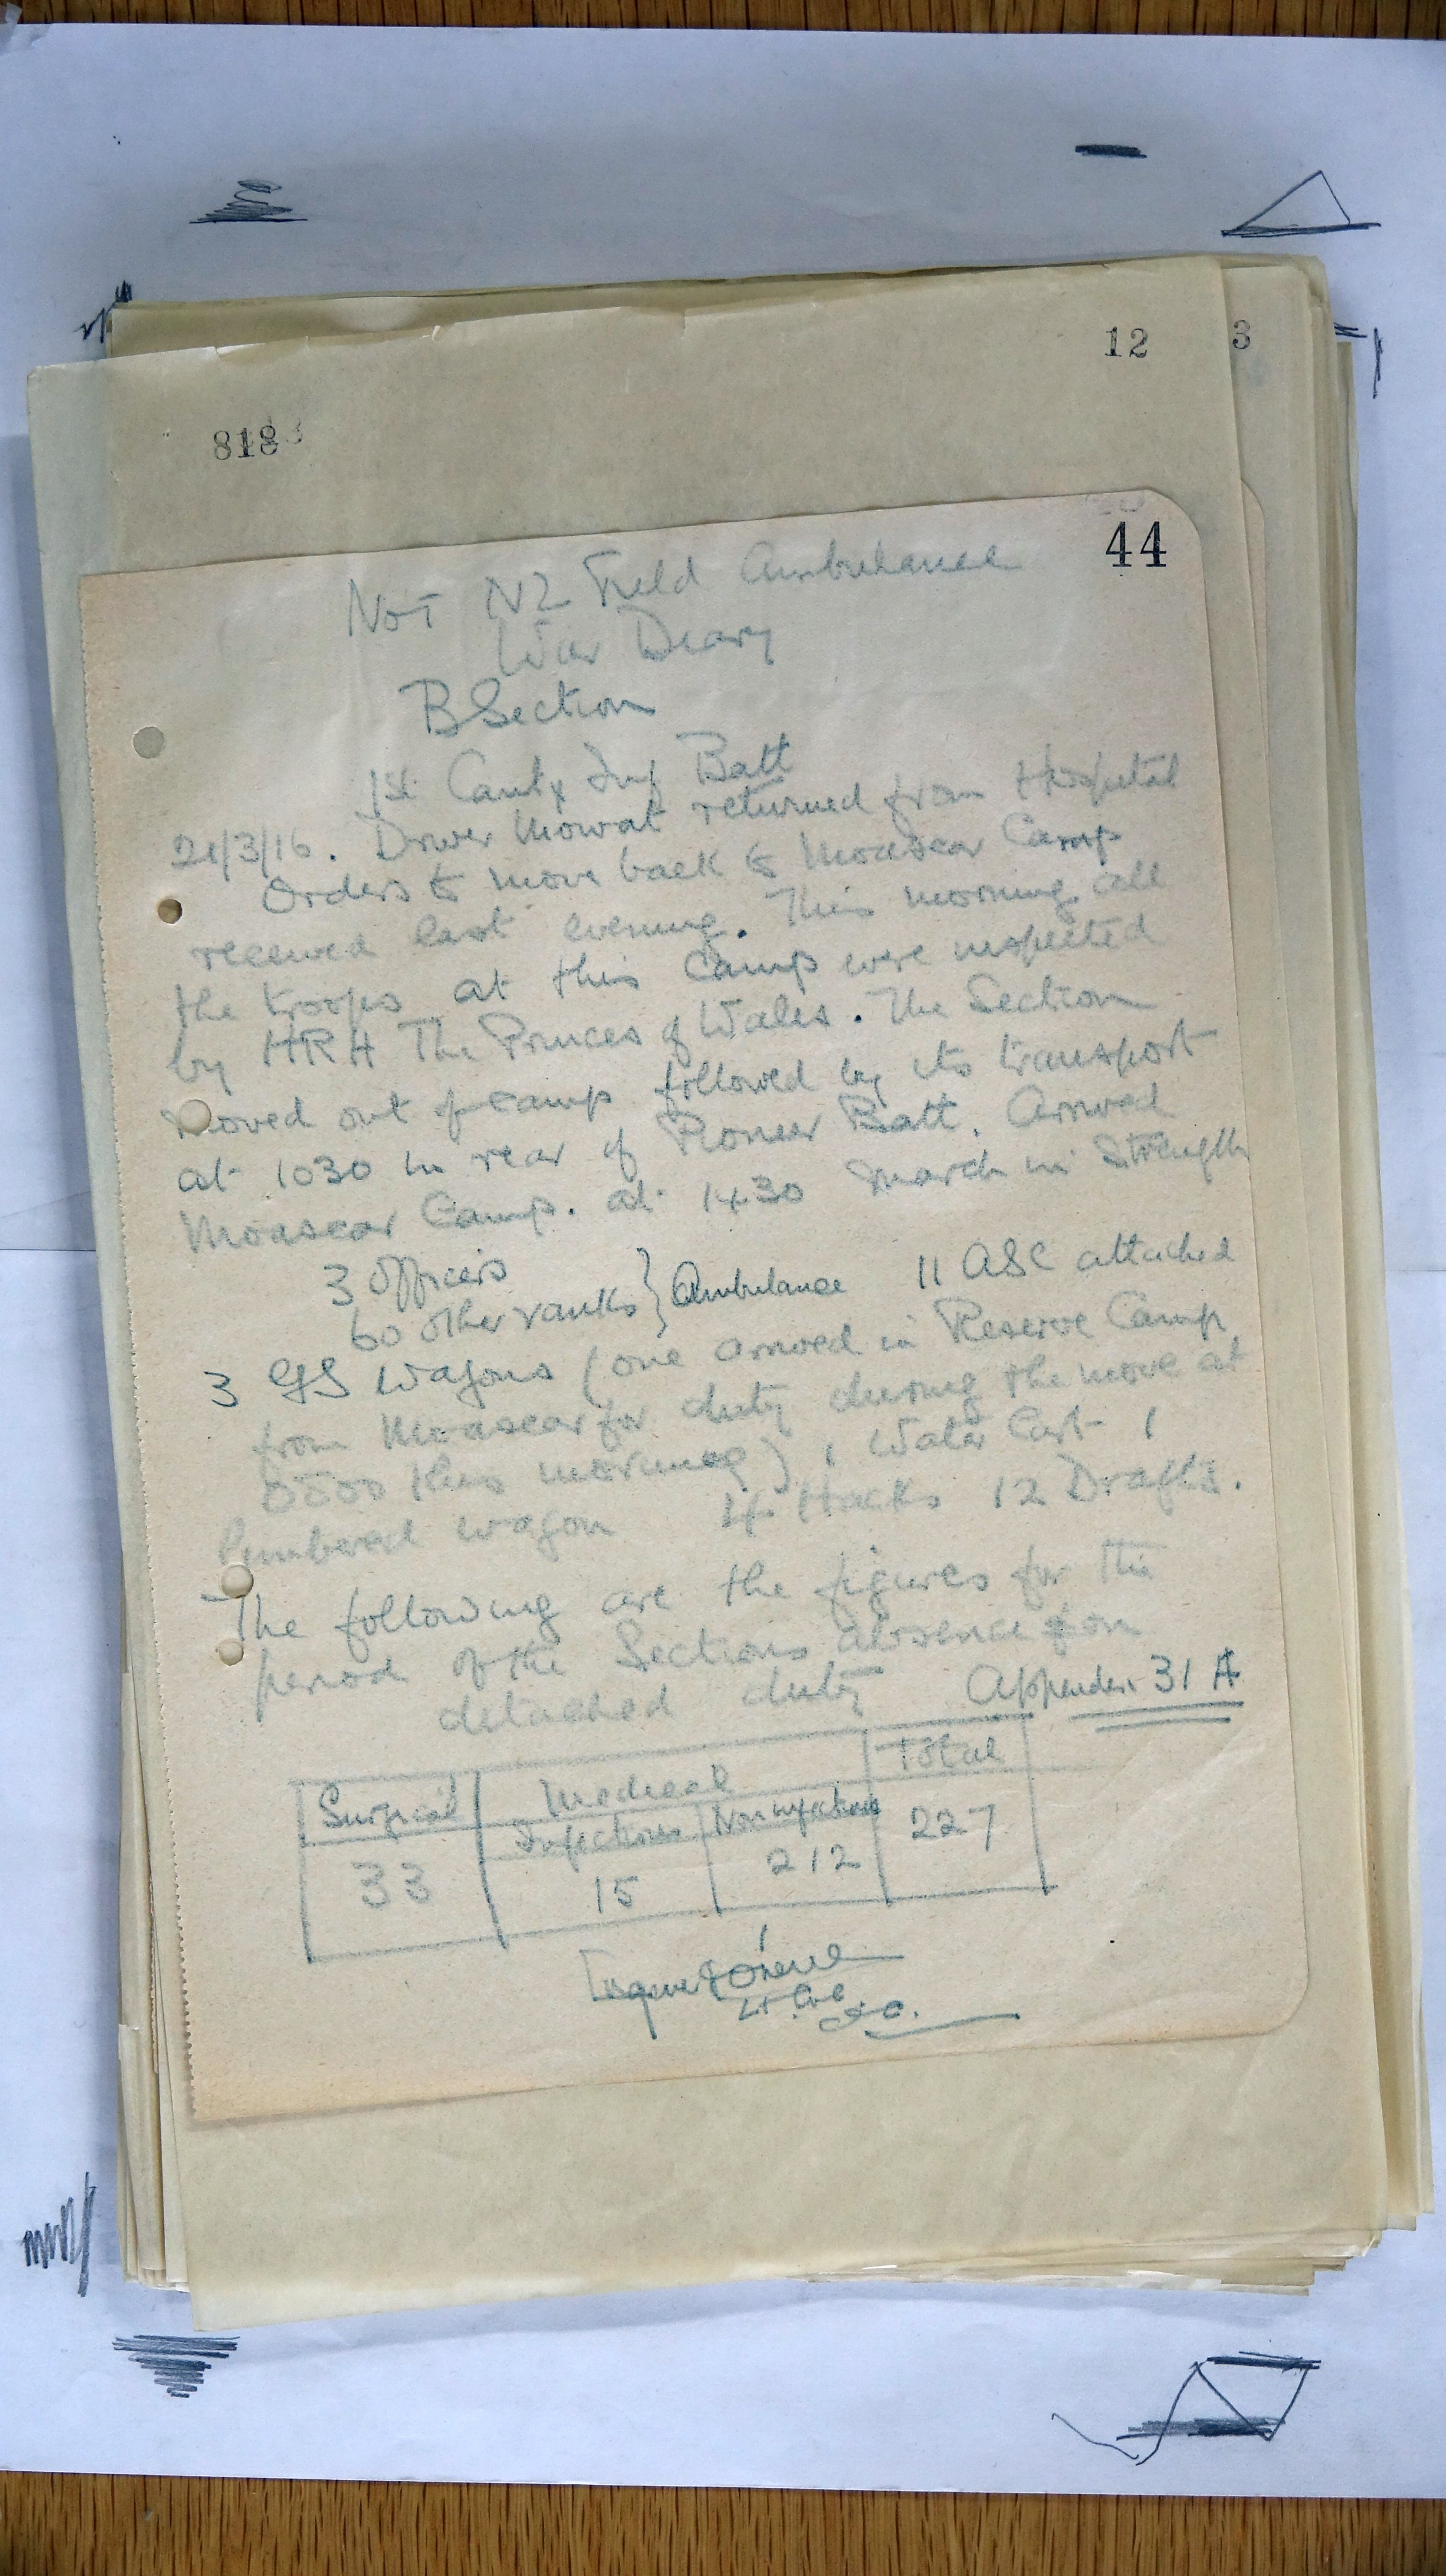 12 3
818
44
No 1 NZ Field Ambulance
War Diary
B Section
1st Canty Inf Batt
21/3/16. Driver Mowat returned from Hospital
Orders to move back to Moascar Camp
received last evening. This morning all
the troops at this Camp were inspected
by HRH The Princes of Wales. The Section
moved out of camp followed by its transport
at 1030 in rear of Pioneer Batt. Arrived
Moascar Camp. at 1430 March in Strength
3 Officers
60 other ranks } Ambulance 11 ASC attached
3 GS Wagons (one arrived in Reserve Camp
from Moascar for duty during the move at
this morning) 1 Water Cart 1
limbered wagon 4 Hacks 12 Drafts.
The following are the figures for the
period of the Sections absence on
detached duty Appendix 31 A
Surgical Medical Total
Infectious Non infectious
33 15 212 227
Lt. Col